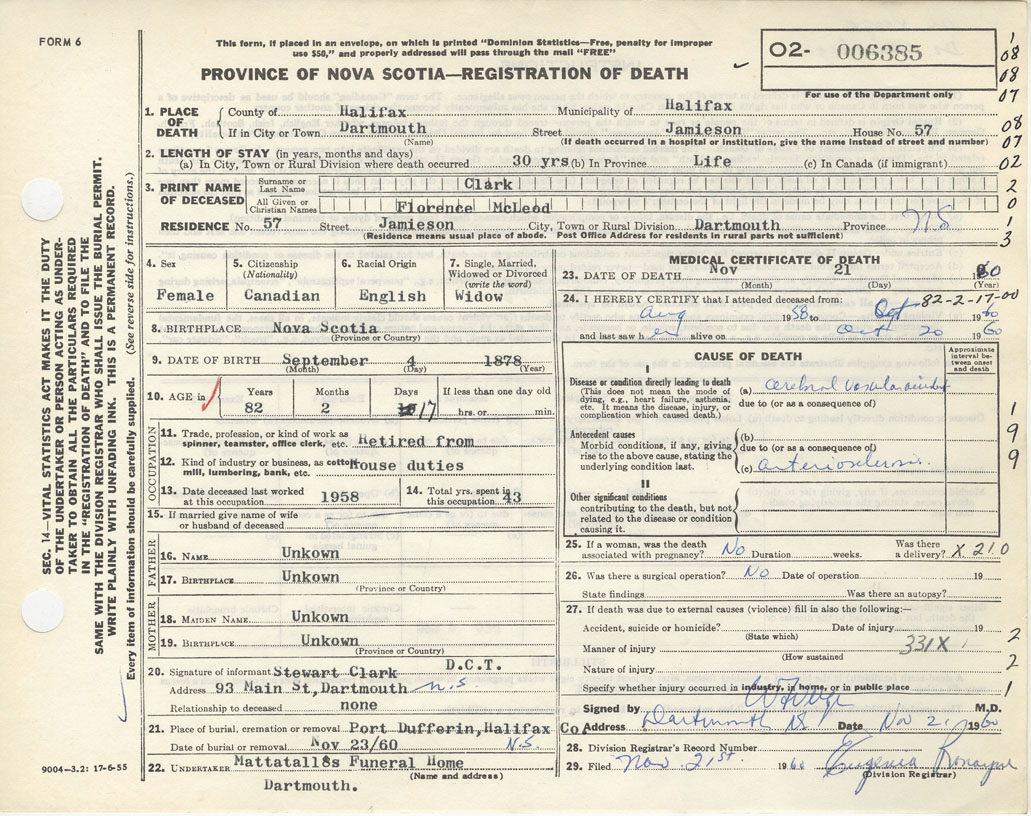 FORM 6
This form, if placed in an envelope, on which is printed "Dominion Statistics—Free, penalty for improper
use $50," and properly addressed will pass through the mail "FREE"
PROVINCE OF NOVA SCOTIA—REGISTRATION OF DEATH
O2- 006385
For use of the Department only
1
08
08
07
08
07
02
2
0
1
3
1. PLACE OF DEATH
County of Halifax Municipality of Halifax
If in City or Town Dartmouth Street Jamieson House No. 57
(Name) (If death occurred in a hospital or institution, give the name instead of street and number)
2. LENGTH OF STAY (in years, months and days)
(a) In City, Town or Rural Division where death occurred 30 yrs (b) In Province Life (c) In Canada (if immigrant)
3. PRINT NAME OF DECEASED
Surname or Last Name Clark
All Given or Christian Names Florence McLeod
RESIDENCE No. 57 Street Jamieson City, Town or Rural Division Dartmouth Province N.S
(Residence means usual place of abode. Post Office Address for residents in rural parts not sufficient)
4. Sex
Female
5. Citizenship
(Nationality)
Canadian
6. Racial Origin
English
7. Single, Married,
Widowed or Divorced
(write the word)
Widow
8. BIRTHPLACE Nova Scotia
(Province or Country)
9. DATE OF BIRTH September 4 1878
(Month) (Day) (Year)
10. AGE in
Years Months Days If less than one day old
82 2 17 hrs. or min.
OCCUPATION
11. Trade, profession, or kind of work as
spinner, teamster, office clerk, etc. Retired from
12. Kind of industry or business, as cotton
mill, lumbering, bank, etc. House duties
13. Date deceased last worked
at this occupation 1958
14. Total yrs. spent in
this occupation 43
15. If married give name of wife
or husband of deceased
FATHER
16. NAME Unkown
17. BIRTHPLACE Unkown
(Province or Country)
MOTHER
18. MAIDEN NAME Unkown
19. BIRTHPLACE Unkown
(Province or Country)
20. Signature of informant Stewart Clark D.C.T.
Address 93 Main St, Dartmouth N.S.
Relationship to deceased none
21. Place of burial, cremation or removal Port Dufferin, Halifax Co
Date of burial or removal Nov 23/60 N.S.
22. UNDERTAKER Mattatall8s Funeral Home
(Name and address)
Dartmouth.
MEDICAL CERTIFICATE OF DEATH
23. DATE OF DEATH Nov 21 1960
(Month) (Day) (Year)
82-2-17-00
24. I HEREBY CERTIFY that I attended deceased from:
Aug 1958 to Oct 1960
and last saw h er alive on Oct 20 1960
CAUSE OF DEATH
Approximate
interval be-
tween onset
and death
I
Disease or condition directly leading to death
(This does not mean the mode of
dying, e.g., heart failure, asthenia,
etc. It means the disease, injury, or
complication which caused death.)
(a) Cerebral vascular accident
due to (or as a consequence of)
Antecedent causes
Morbid conditions, if any, giving
rise to the above cause, stating the
underlying condition last.
(b)
due to (or as a consequence of)
(c) arteriosclerosis
II
Other significant conditions
contributing to the death, but not
related to the disease or condition
causing it.
1
9
9
25. If a woman, was the death
associated with pregnancy? No Duration weeks. Was there
a delivery? X 210
26. Was there a surgical operation? No Date of operation 19
State findings Was there an autopsy?
27. If death was due to external causes (violence) fill in also the following:—
Accident, suicide or homicide? Date of injury 19
(State which)
Manner of injury 331X
(How sustained
Nature of injury
Specify whether injury occurred in industry, in home, or in public place
2
2
1
Signed by M.D.
Address Dartmouth NS Date Nov 21 1960
28. Division Registrar's Record Number
29. Filed Nov. 21st. 1960 Eugenia Ronayne
(Division Registrar)
SEC. 14—VITAL STATISTICS ACT MAKES IT THE DUTY
OF THE UNDERTAKER OR PERSON ACTING AS UNDER-
TAKER TO OBTAIN ALL THE PARTICULARS REQUIRED
IN THE "REGISTRATION OF DEATH" AND TO FILE THE
SAME WITH THE DIVISION REGISTRAR WHO SHALL ISSUE THE BURIAL PERMIT.
WRITE PLAINLY WITH UNFADING INK. THIS IS A PERMANENT RECORD.
Every item of information should be carefully supplied. (See reverse side for instructions.)
9004-3.2: 17-6-55